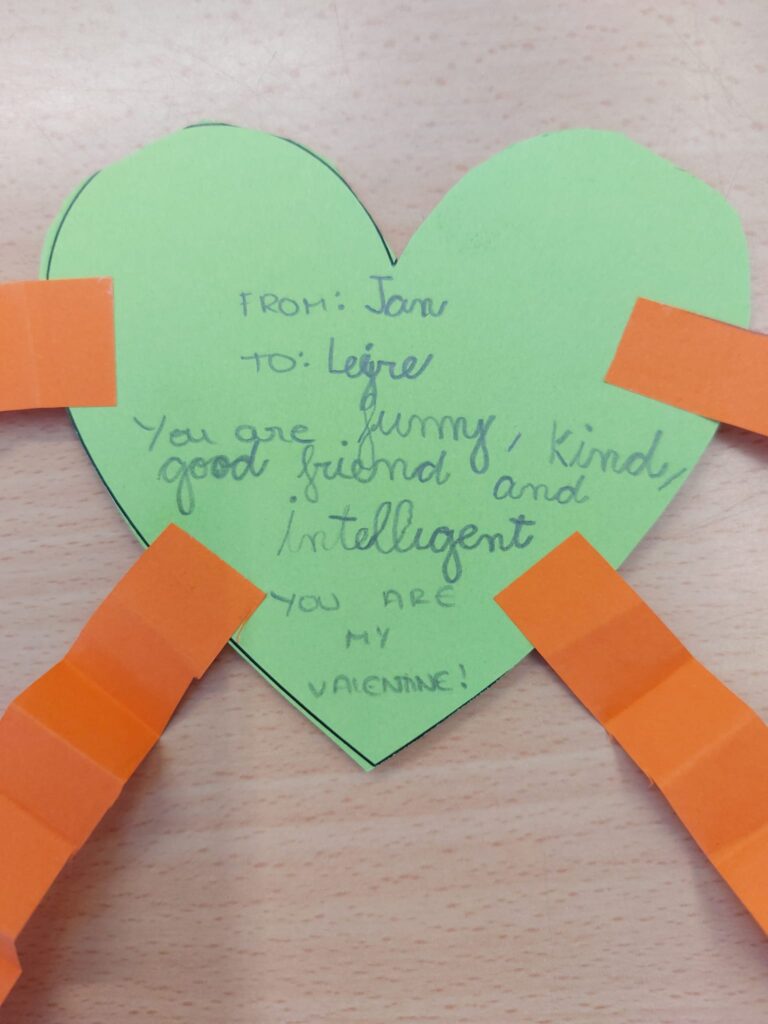 FROM: Jan
TO: Leire
You are funny, kind,
good friend and
intelligent
YOU ARE
MY
VALENTINE!